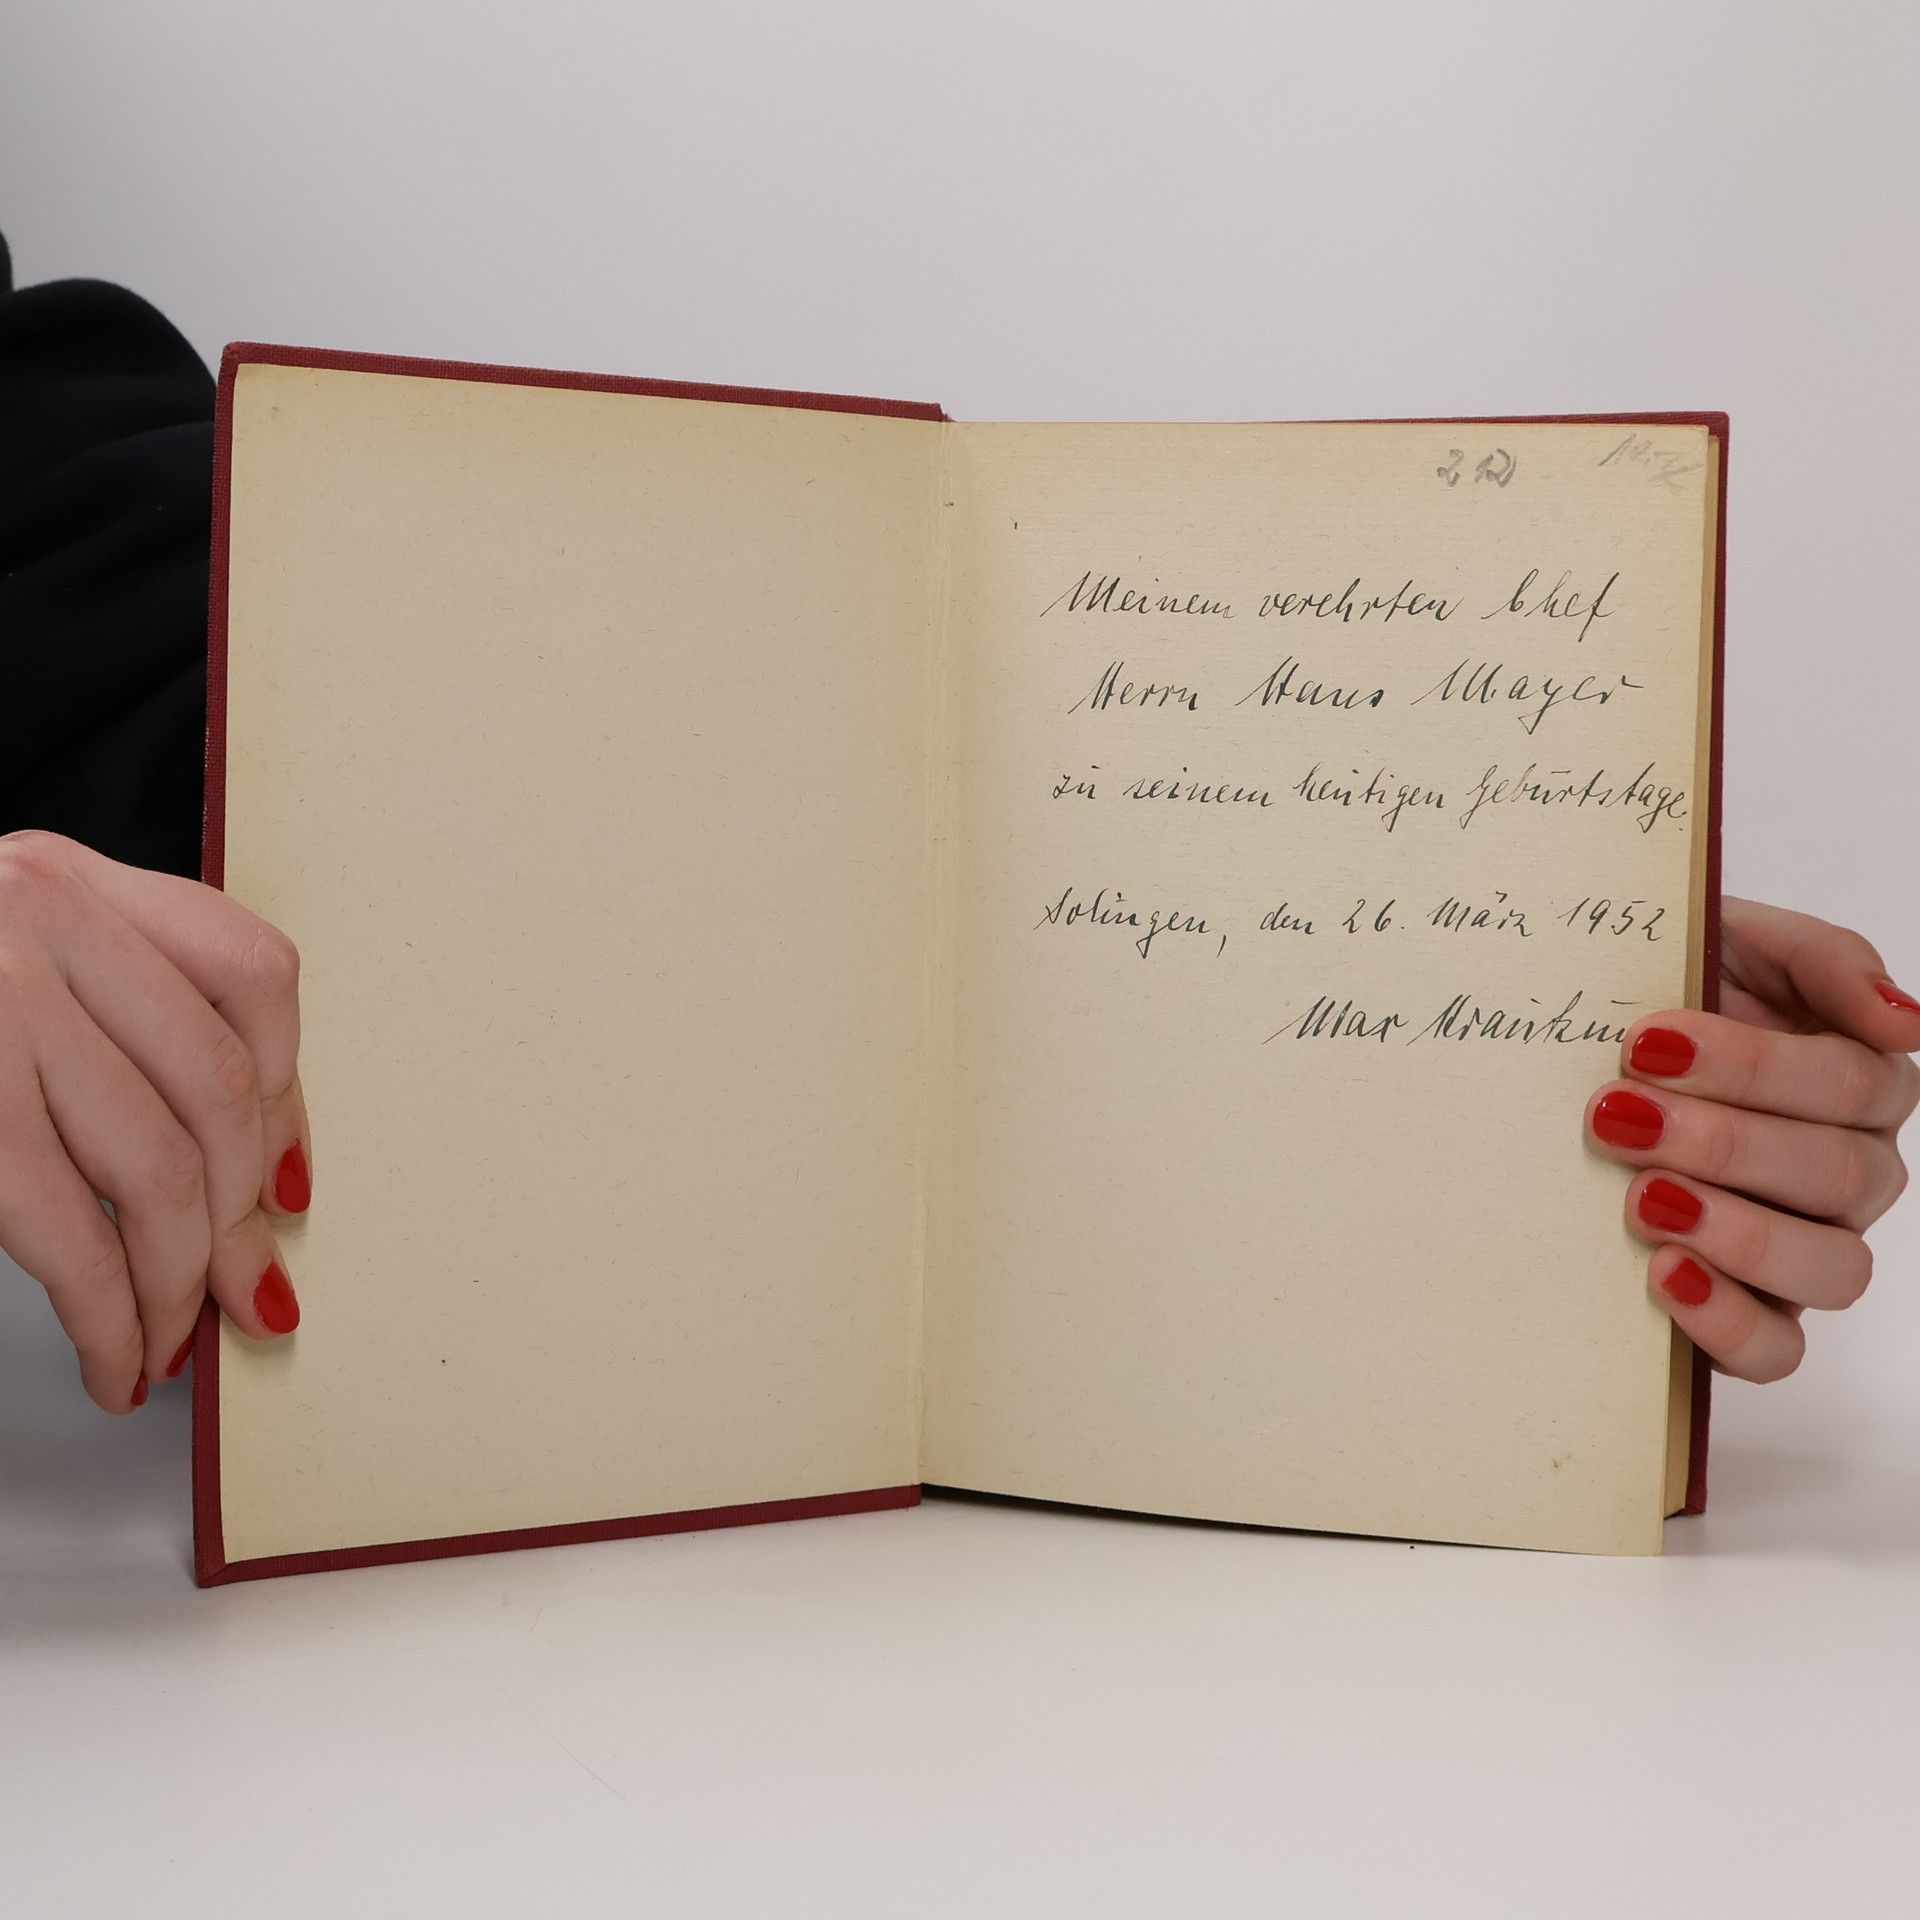 212
Meinem verehrten Chef
Herrn Hans Mayer
zu seinem heutigen Geburtstage.
Solingen, den 26. März 1952
Max